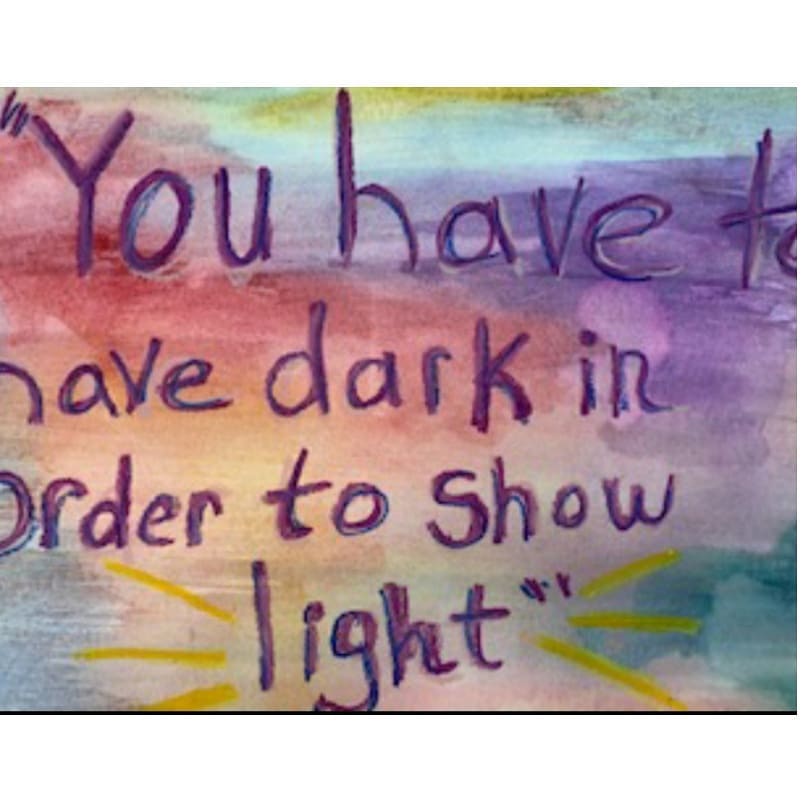 "You have to
have dark in
order to show
light"